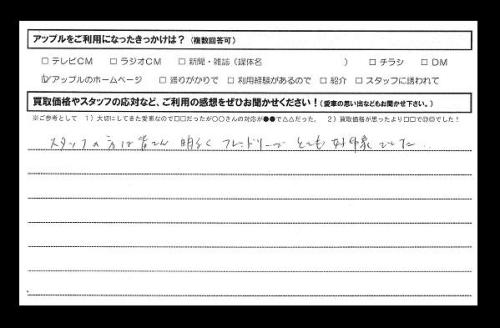 アップルをご利用になったきっかけは？（複数回答可）
□ テレビCM □ ラジオCM □ 新聞・雑誌（媒体名 ） □ チラシ □ DM
☑ アップルのホームページ □ 通りがかりで □ 利用経験があるので □ 紹介 □ スタッフに誘われて
買取価格やスタッフの応対など、ご利用の感想をぜひお聞かせください！（愛車の思い出などもお聞かせ下さい。）
※ご参考として 1）大切にしてきた愛車なので□□だったが○○さんの対応が●●で△△だった。 2）買取価格が思ったより□□で◎◎でした！
スタッフの方は皆さん 明るく フレンドリーで とても 好印象 でした。